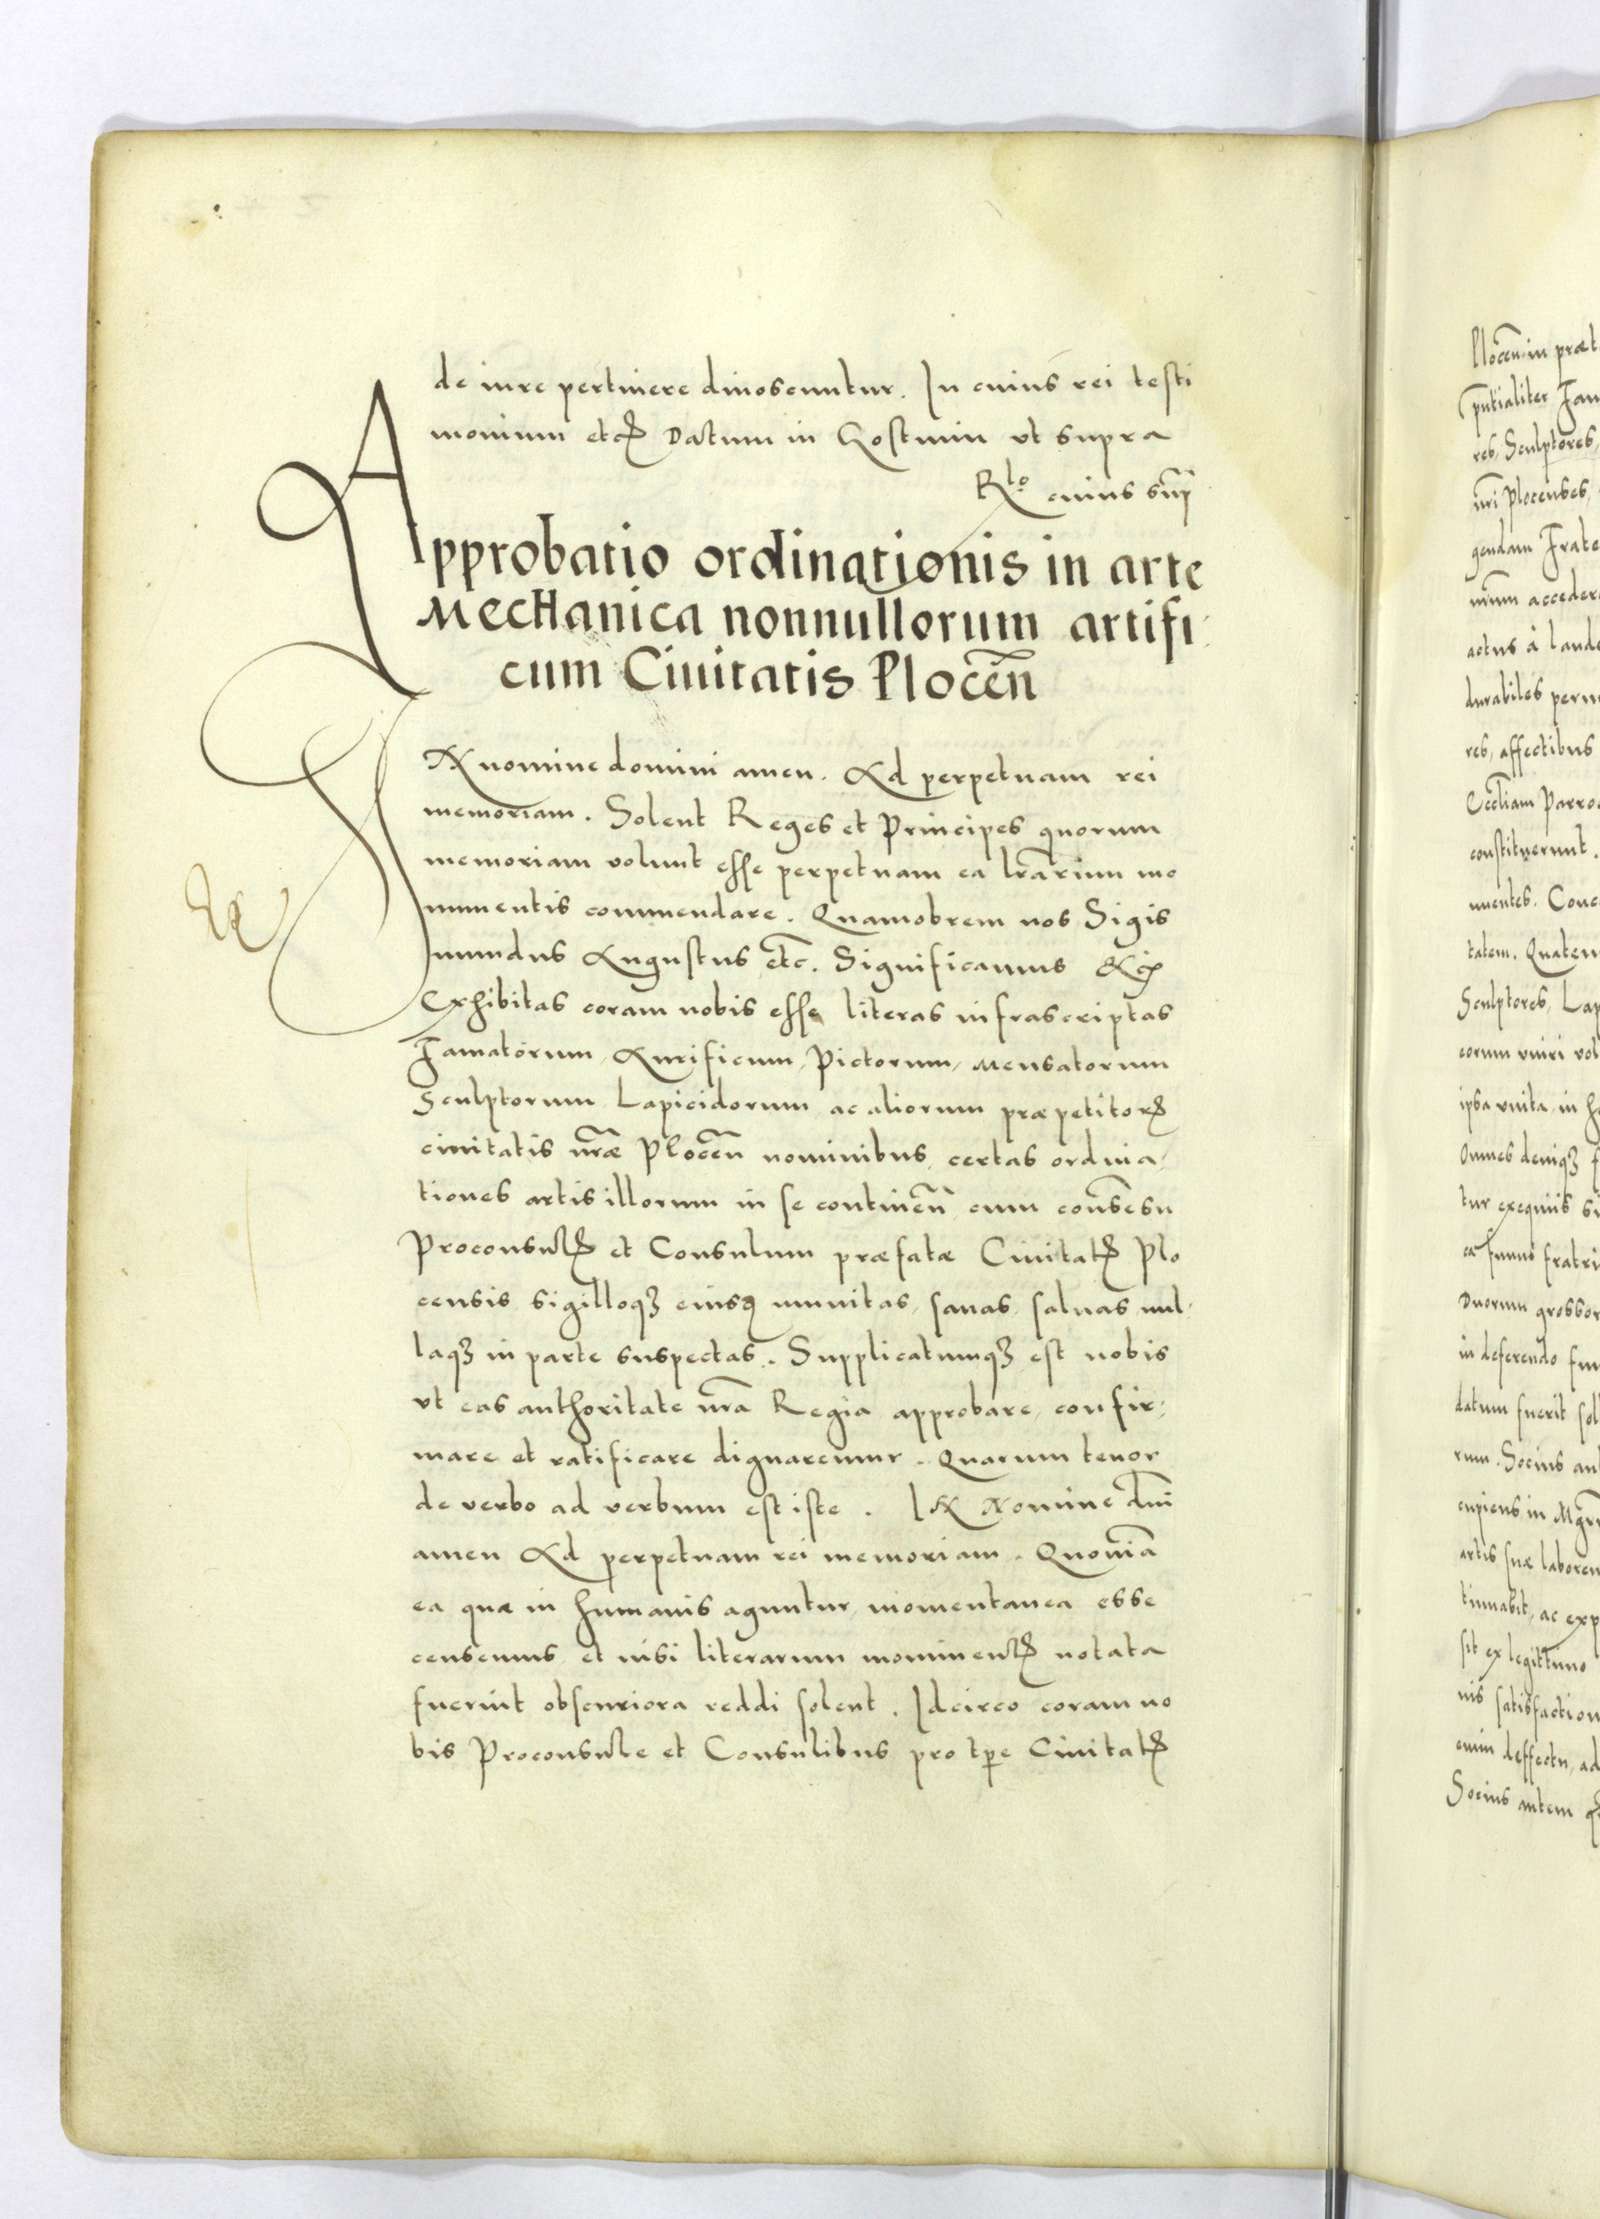 de iure pertinere dinoscuntur. In cuius rei testi
monium etc̃ Datum in Gostinin vt supra
Rlo cuius sup̃
Approbatio ordinationis in arte
Mechanica nonnullorum artifi
cum Ciuitatis Plocen̄
IN nomine domini amen. Ad perpetuam rei
memoriam. Solent Reges et Principes quorum
memoriam volunt esse perpetuam ea lr̃arum mo
numentis commendare. Quamobrem nos Sigis
mundus Augustus etc̃. Significamus &c̃
Exhibitas coram nobis esse literas infrascriptas
Famatorum, Aurificum, Pictorum, Mensatorum
Sculptorum Lapicidorum ac aliorum præpetitorꝝ
ciuitatis nr̃æ Plocen̄ nominibus, certas ordina,
tiones artis illorum in se continen̄, cum consensu
Proconsulꝭ et Consulum præfatæ Ciuitatꝭ Plo
censis, sigilloqꝫ eiusꝫ munitas, sanas, saluas, nul,
laqꝫ in parte suspectas. Supplicatumqꝫ est nobis
vt eas authoritate nr̃a Regia approbare, confir,
mare et ratificare dignaremur. Quarum tenor
de verbo ad verbum est iste. IN Nomine dn̄i
amen Ad perpetuam rei memoriam. Quoniā
ea quæ in humanis aguntur, momentanea esse
censemus, et nisi literarum monimentꝭ notata
fuerint obscuriora reddi solent. Idcirco coram no
bis Proconsule et Consulibus pro tp̃e Ciuitatꝭ
Plocen̄ in præt
res, Sculptores,
nr̃i Plocenses,
gendam Frate
actus à laud
durabiles perm
res, affectibus
Eccl̃iam Parro
constituerunt.
nuentes. Conc
tatem. Quatem
Sculptores, Lap
eorum vniri vol
ipsa vnita in h
Omnes deniqꝫ f
tur exequiis si
ca funus fratri
Duorum grossor
in deferendo fun
datum fuerit sol
rum. Socius aut
cupiens in Mgr̃
artis suæ laborem
tinuabit, ac exp
sit ex legittimo
nis satisfaction
enim deffectu, ad
Socius autem q